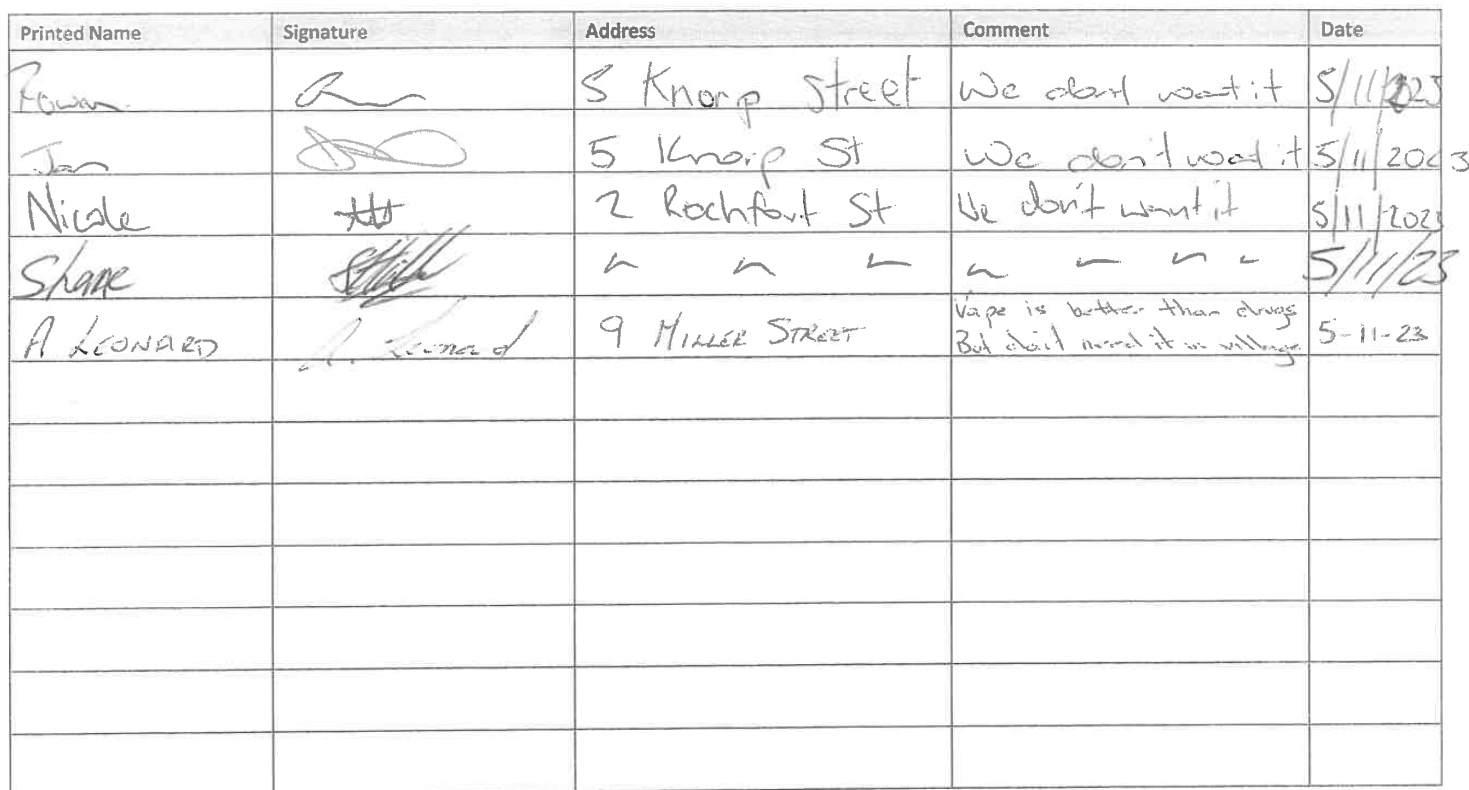 Printed Name Signature Address Comment Date
Rowan 5 Knorp Street We don't want it 5/11/2023
Jan 5 Knorp St We don't want it 5/11/2023
Nicole 2 Rochfort St We don't want it 5/11/2023
Shane 5/11/23
A LEONARD A. Leonard 9 MILLER STREET Vape is better than drugs
But don't need it in village 5-11-23